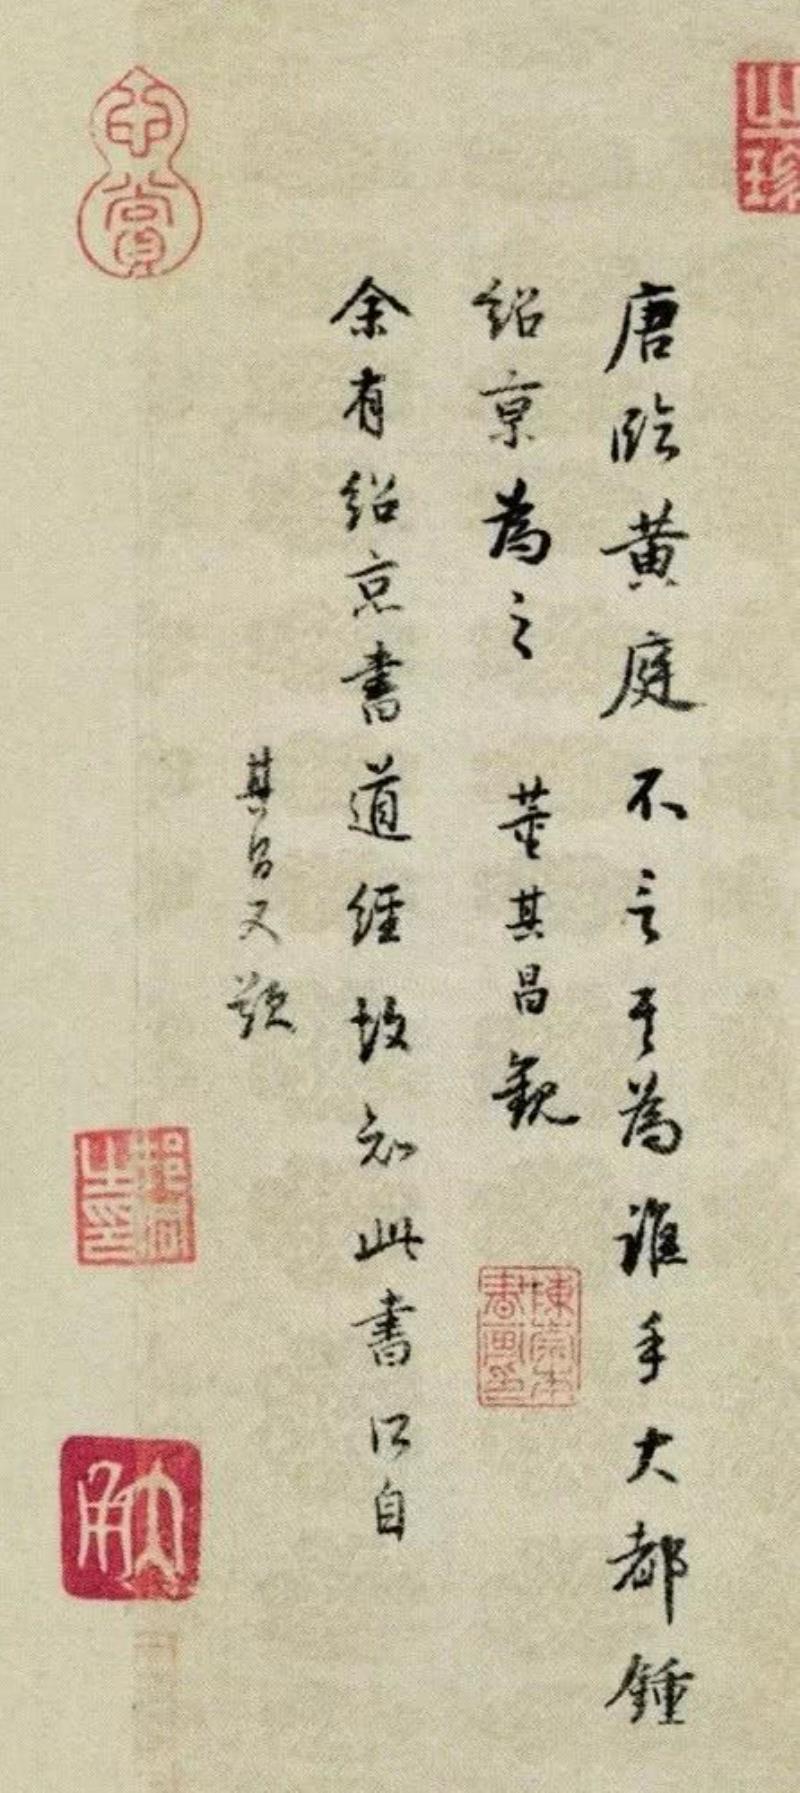 唐臨黃庭不言其為誰手大都鍾
紹京為之 董其昌觀
余有紹京書道經故知此書所自
其昌又題
之珍
賞